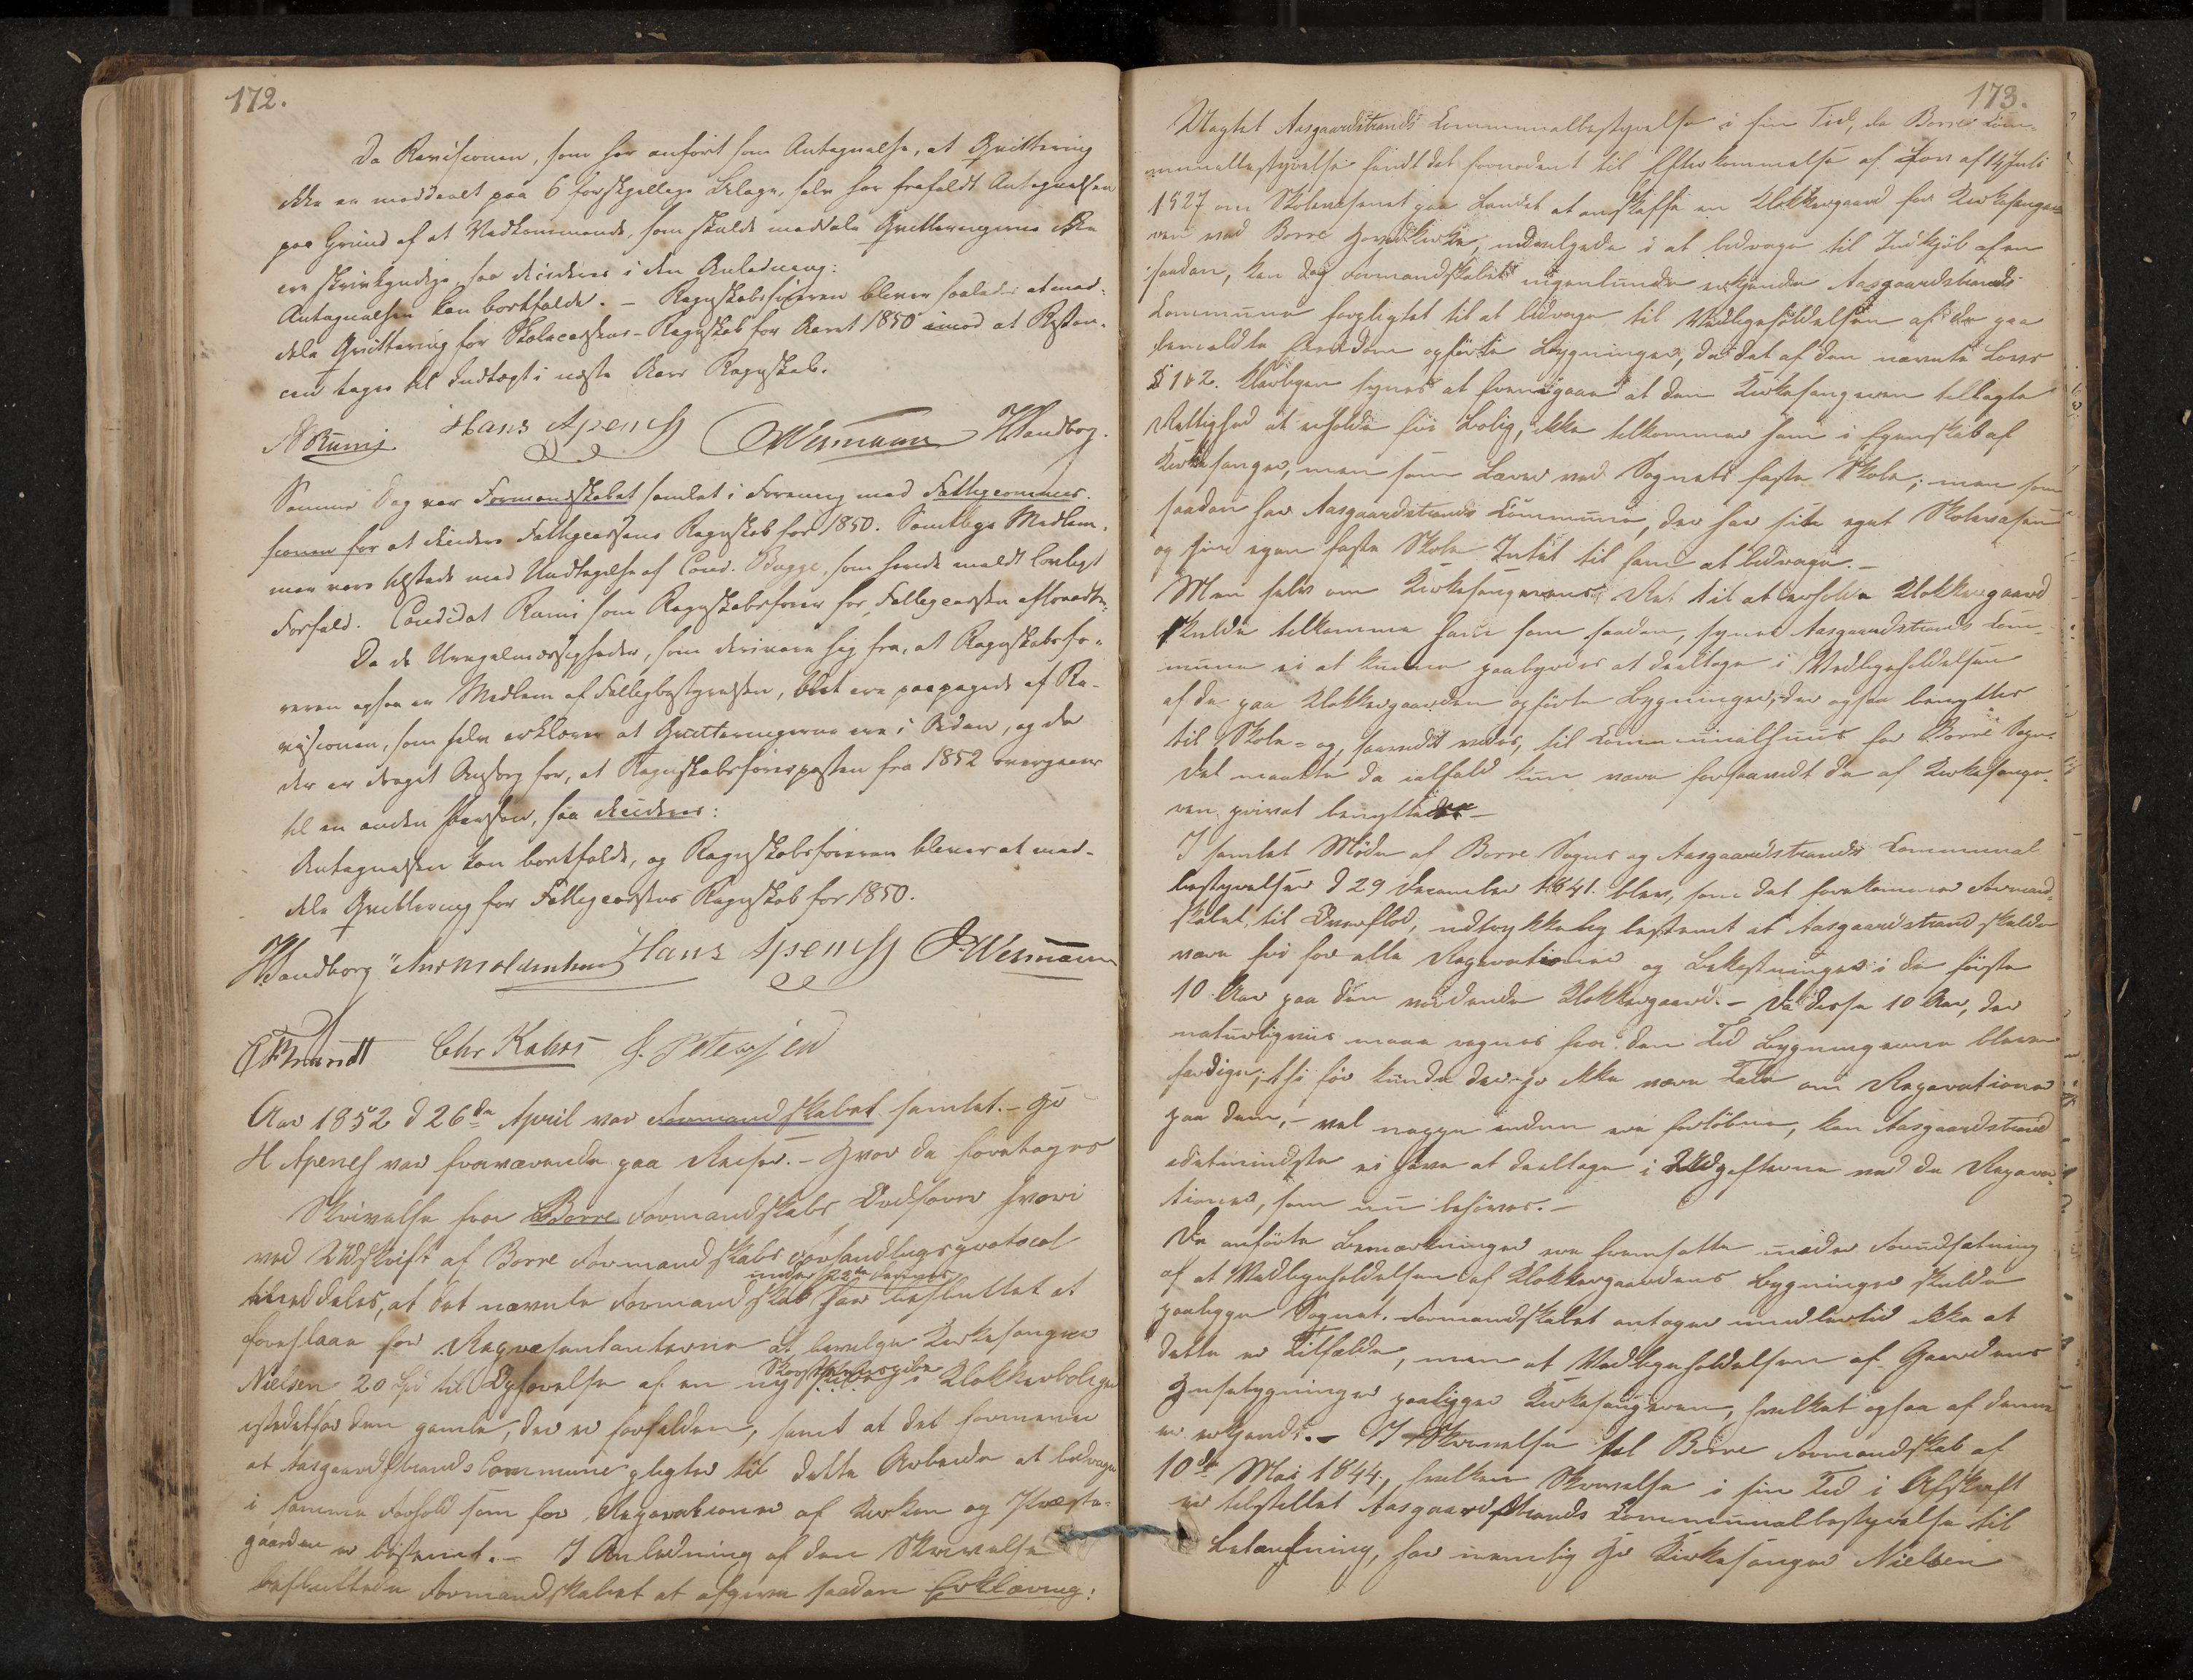 172.
Da Revisionen, som har anført som Antegnelse, at Qvittering
ikke er meddeelt paa 6 forskjellige Bilage, selv har frafaldt Antegnelsen
paa Grund af at Vedkommende, som skulde meddele Qvitteringerne ikke
ere skrivkyndige, saa decideres i den Anledning:
Antegnelsen kan bortfalde. – Regnskabsføreren bliver saaledes at med-
dele Qvittering for Skolecassens-Regnskab for Aaret 1850 imod at Behold-
en tages til Indtægt i næste Aars Regnskab.
Hans Apenes Wesmann HSandborg.
Samme Dag var Formandskabet samlet i Forening med Fattigcommis-
sionen for at decidere Fattigcassens Regnskab for 1850. Samtlige Medlem-
mer vare tilstede med Undtagelse af Cand. Bugge, som havde meldt lovligt
Forfald. Candidat Rumi som Regnskabsfører for Fattigcassen aftraadte.
Da de Uregelmæssigheder, som derivere sig fra, at Regnskabsfø-
reren ogsaa er Medlem af Fattigbestyrelsen, blot ere paapegede af Re-
visionen, som selv erklærer at Qvitteringerne ere i Orden, og da
der er draget Omsorg for, at Regnskabsførerposten fra 1852 overgaaer
til en anden Person, saa decideres:
Antegnelsen kan bortfalde, og Regnskabsføreren bliver at med-
dele Qvittering for Fattigcassens Regnskab for 1850.
HSandborg Hans Apenes Wesmann
Brandt Chr Kahrs J. Petersen
Aar 1852 d 26de April var Formandskabet samlet. – Hr
H Apenes var fraværende paa Reiser. – Hvor da foretages
Skrivelse fra Borre Formandskabs Ordfører hvori
ved Udskrift af Borre Formandskabs Forhandlingsprotocol
under 22de
meddeles, at det nævnte Formandskab har besluttet at
foreslaae for Repræsentanterne at bevilge Kirkesanger
Skorsteenspibe
Nielsen 20 Spd til Opførelse af en ny i Klokkerboligen
istedetfor den gamle, der er forfalden, samt at det formener
at Aasgaardstrands Commune pligter til dette Arbeide at bidrage
i samme Forhold som for Reparationer af Kirken og Præste-
gaarden er bestemt. – I Anledning af den Skrivelse
besluttede Formandskabet at afgive saadan Erklæring:
173.
Uagtet Aasgaardstrands Communalbestyrelse i sin Tid, da Borres Com-
munalbestyrelse fandt det fornødent til Efterkommelse af Lov af 14 Juli
1827 om Skolevæsenet paa Landet at anskaffe en Klokkergaard for Kirkesange-
ren ved Borre Hovedkirke, indvilgede i at bidrage til Indkjøb af en
saadan, kan dog Formandskabet ingenlunde erkjende Aasgaardstrands
Commune forpligtet til at bidrage til Vedligeholdelsen af de paa
bemeldte Eiendom opførte Bygninger, da det af den nævnte Lovs
§ 1 & 2. klarligen synes at fremgaae at den Kirkesangeren tillagte
Rettighed at erholde frie Bolig, ikke tilkommer ham i Egenskab af
Kirkesanger, men som Lærer ved Sognets faste Skole; men som
saadan har Aasgaardstrands Commune, der har sit eget Skolevæsen
og sin egen faste Skole Intet til ham at bidrage. –
Men selv om Kirkesangerens Ret til at erholde Klokkergaard
skulde tilkomme ham som saadan, synes Aasgaardstrands Com-
mune ei at kunne paabyrdes at deeltage i Vedligeholdelsen
af de paa Klokkergaarden opførte Bygninger, der ogsaa benyttes
til Skole- og, saavidt vides, til Communalhuus for Borre Sogn.
Det maatte da ialfald kun være forsaavidt de af Kirkesange-
ren privat benyttedes –
I samlet Møde af Borre Sogns og Aasgaardstrands Communal
bestyrelser d 29 December 1841. blev, som det forekommer Formand-
skabet til Overflod, udtrykkelig bestemt at Aasgaardstrand skulde
være fri for alle Reparationer og Bekostninger i de første
10 Aar paa den vordende Klokkergaard. – Da disse 10 Aar, der
naturligviis maae regnes fra den Tid Bygningerne bleve
færdige, thi før kunde der jo ikke være Tale om Reparationer
paa dem, – vel neppe endnu ere forløbne, kan Aasgaardstrand
idetmindste ei have at deeltage i Udgifterne ved de Repara-
tioner, som nu behøves. –
De anførte Bemærkninger ere fremsatte under Forudsætning
af at Vedligeholdelsen af Klokkergaardens Bygninger skulde
paaligge Sognet. Formandskabet antager imidlertid ikke at
dette er Tilfælde, men at Vedligeholdelsen af Gaardens
Husebygninger paaligger Kirkesangeren, hvilket ogsaa af denne
er erkjendt. – I Skrivelse til Borre Formandskab af
10de Mai 1844, hvilken Skrivelse i sin Tid i Afskrift
er tilstillet Aasgaardstrands Communalbestyrelse til
Betænkning, har nemlig Hr Kirkesanger Nielsen